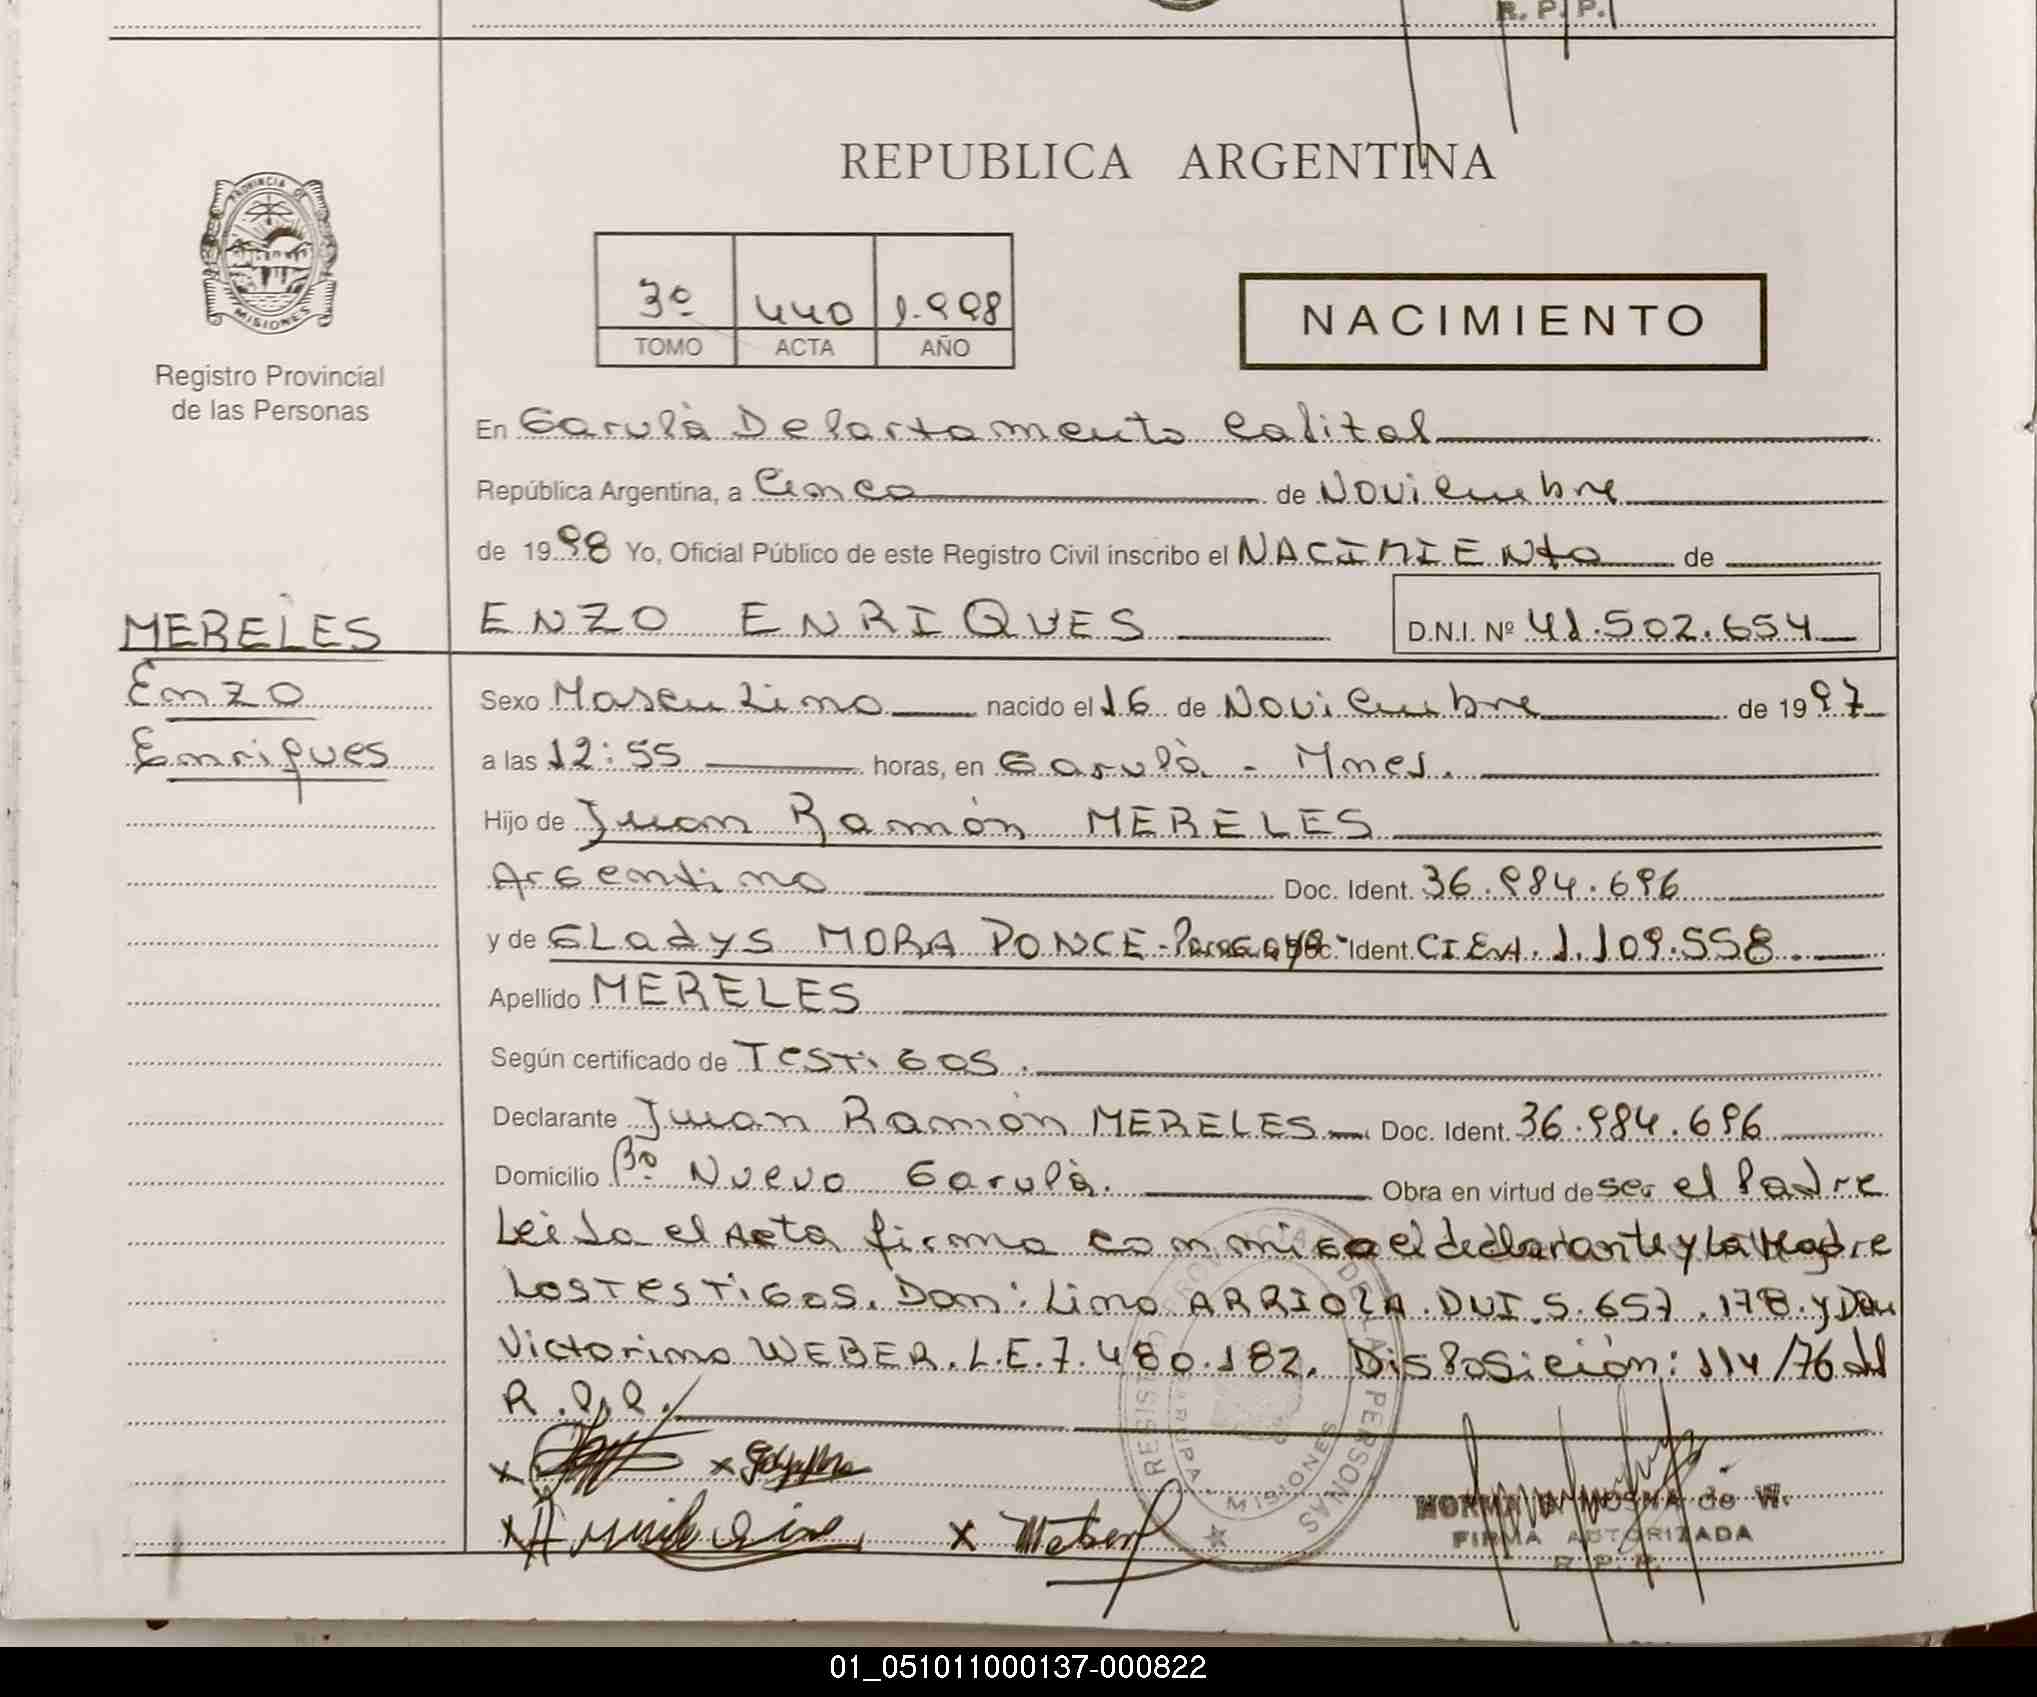 R. P. P.
REPUBLICA ARGENTINA
PROVINCIA DE
MISIONES
Registro Provincial
de las Personas
3º 440 1.998
TOMO ACTA AÑO
NACIMIENTO
En Garupà Departamento Capital
República Argentina, a Cinco de Noviembre
de 1998 Yo, Oficial Público de este Registro Civil inscribo el NACIMIENto de
MERELES
ENZO ENRIQUES D.N.I. Nº 41.502.654
Enzo
Enriques
Sexo Masculino nacido el 16 de Noviembre de 1997
a las 12:55 horas, en Garupà - Mnes.
Hijo de Juan Ramón MERELES
Argentino Doc. Ident. 36.984.696
y de GLadys MORA PONCE - Paraguya - Doc. Ident. CIExt. 1.109.558
Apellido MERELES
Según certificado de TesTiGos.
Declarante Juan Ramón MERELES Doc. Ident. 36.984.696
Domicilio Bº Nuevo Garupà. Obra en virtud de ser el Padre
Leida el Acta firma conmigo el declarante y La Madre
Los TesTiGos. Don: Lino ARRIOLA. DNI. 5.657.178. y Don
Victorino WEBER. L.E. 7.480.182. Disposición: 114/76 del
R.P.P.
x x
x x Weber
REGISTRO PROVINCIAL DE LAS PERSONAS
MISIONES
NORMA B. MOSNA de W.
FIRMA AUTORIZADA
R. P. P.
01_051011000137-000822